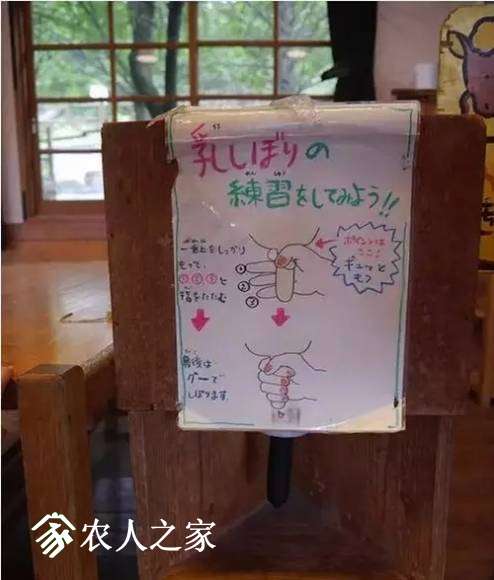 乳しぼりの
練習をしてみよう!!
一番上をしっかり
もって、
①②③と
指をたたむ
①
②
③
ポイントは
ここ!
ギュッと
もつ
最後は
グーで
しぼります
农人之家